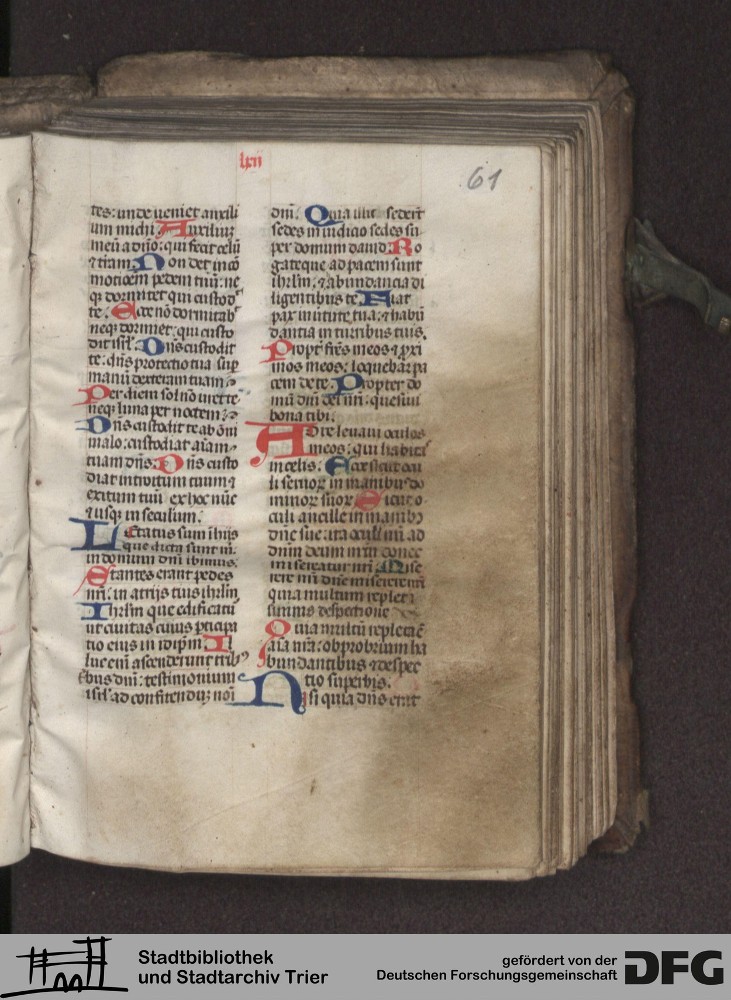 lxii
61
tes: unde veniet auxili
um michi. Auxiliuʒ
meū a dn̄o: qui fecit celū
⁊ t̄ram. Non det in cō
motiōem pedem tuū: ne
qꝫ dormitet qui custod'
te. Ecce nō dormitab'
neqꝫ dormiet: qui custo
dit isrl'. Dn̄s custodit
te: dn̄s protectio tua sup̄
manū dexteram tuam.
Per diem sol nō uret te:
neqꝫ luna per noctem.
Dn̄s custodit te ab ōni
malo: custodiat aīam
tuam dn̄s. Dn̄s custo
diat introitum tuum ⁊
exitum tuū ex hoc nūc
⁊ usqꝫ in seculum.
Letatus sum ī hijs
que dicta sunt m̄:
in domum dn̄i ibimus.
Stantes erant pedes
nr̄i: in atrijs tuis ihrlm̄.
Ihrlm̄ que edificatur
ut civitas cuius p̄ticipa
tio eius in idip̄m. Il
luc eni᷒ ascenderunt trib'
tribus dn̄i: testimonium
isrl' ad confitenduʒ noī
dn̄i. Quia illic sederūt
sedes in iudicio sedes su
per domum david. Ro
gate que ad pacem sunt
ihrlm̄: ⁊ abundancia di
ligentibus te. Fiat
pax in v̄tute tua: ⁊ habū
dantia in turribus tuis.
Propt̄ fr̄es meos ⁊ p̄xi
mos meos: loquebar pa
cem de te. Propter do
mū dn̄i dei nr̄i: quesiui
bona tibi.
Ad te levavi oculos
meos: qui habitas
in celis. Ecce sicut ocu
li servor̄ in manibus do
minor̄ suor̄. Sicut o
culi ancille in manibꝫ
dn̄e sue: ita oculi nr̄i ad
dn̄m deum nr̄m donec
misereatur nr̄i. Mise
rere nr̄i dn̄e miserere nr̄i
quia multum repleti
sumus despectione
Quia multū repleta ē
aīa nr̄a: obprobrium ha
bundantibus ⁊ despec
tio superbis.
Nisi quia dn̄s erat
Stadtbibliothek
und Stadtarchiv Trier
gefördert von der
Deutschen Forschungsgemeinschaft
DFG